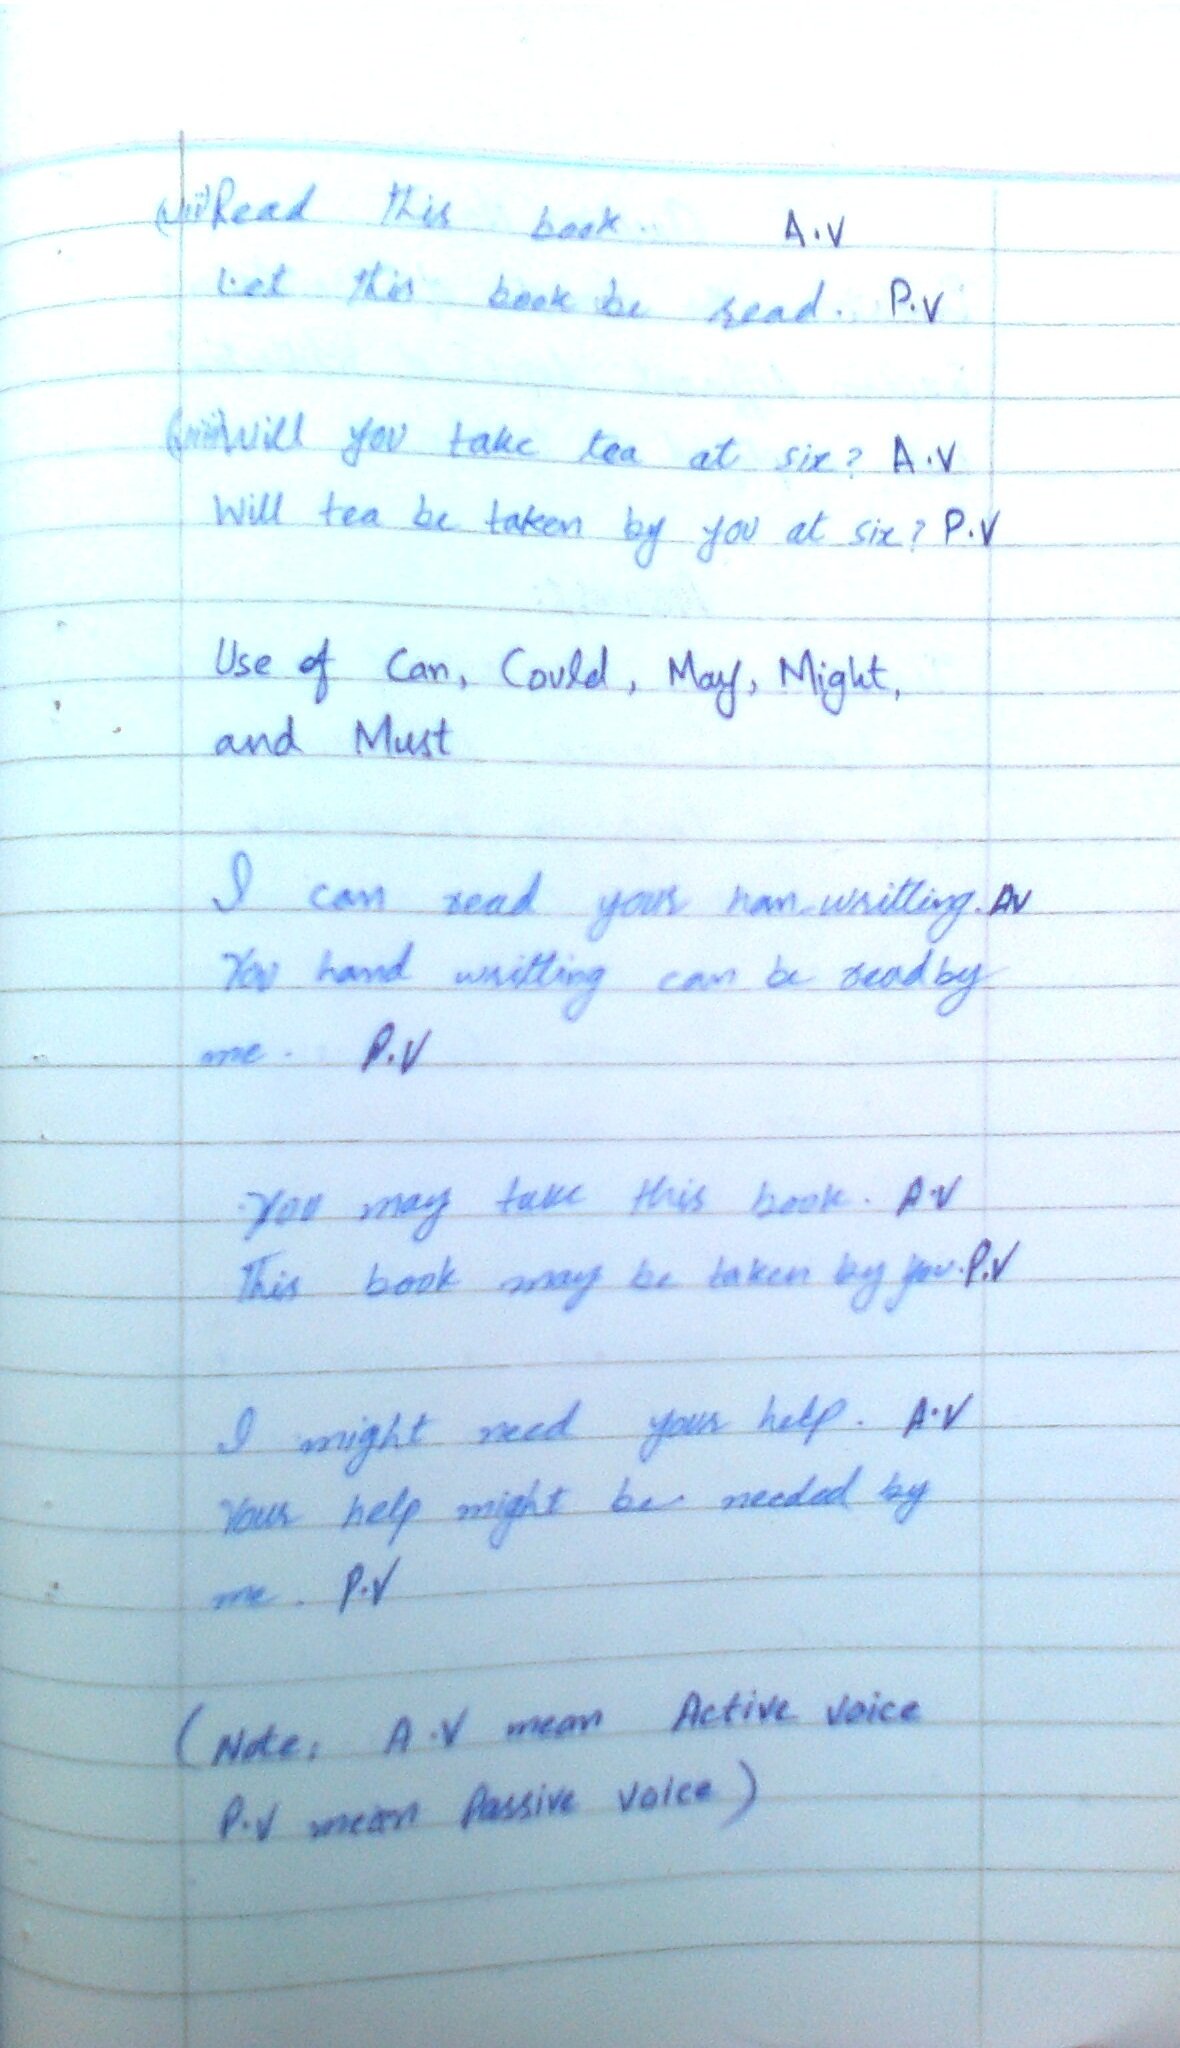 (vii) Read this book. A.V
Let this book be read. P.V
(viii) Will you take tea at six? A.V
Will tea be taken by you at six? P.V
Use of Can, Could, May, Might,
and Must
I can read your han writting. AV
You hand writting can be read by
me. P.V
You may take this book. A.V
This book may be taken by you. P.V
I might need your help. A.V
Your help might be needed by
me. P.V
(Note: A.V mean Active voice
P.V mean Passive voice)